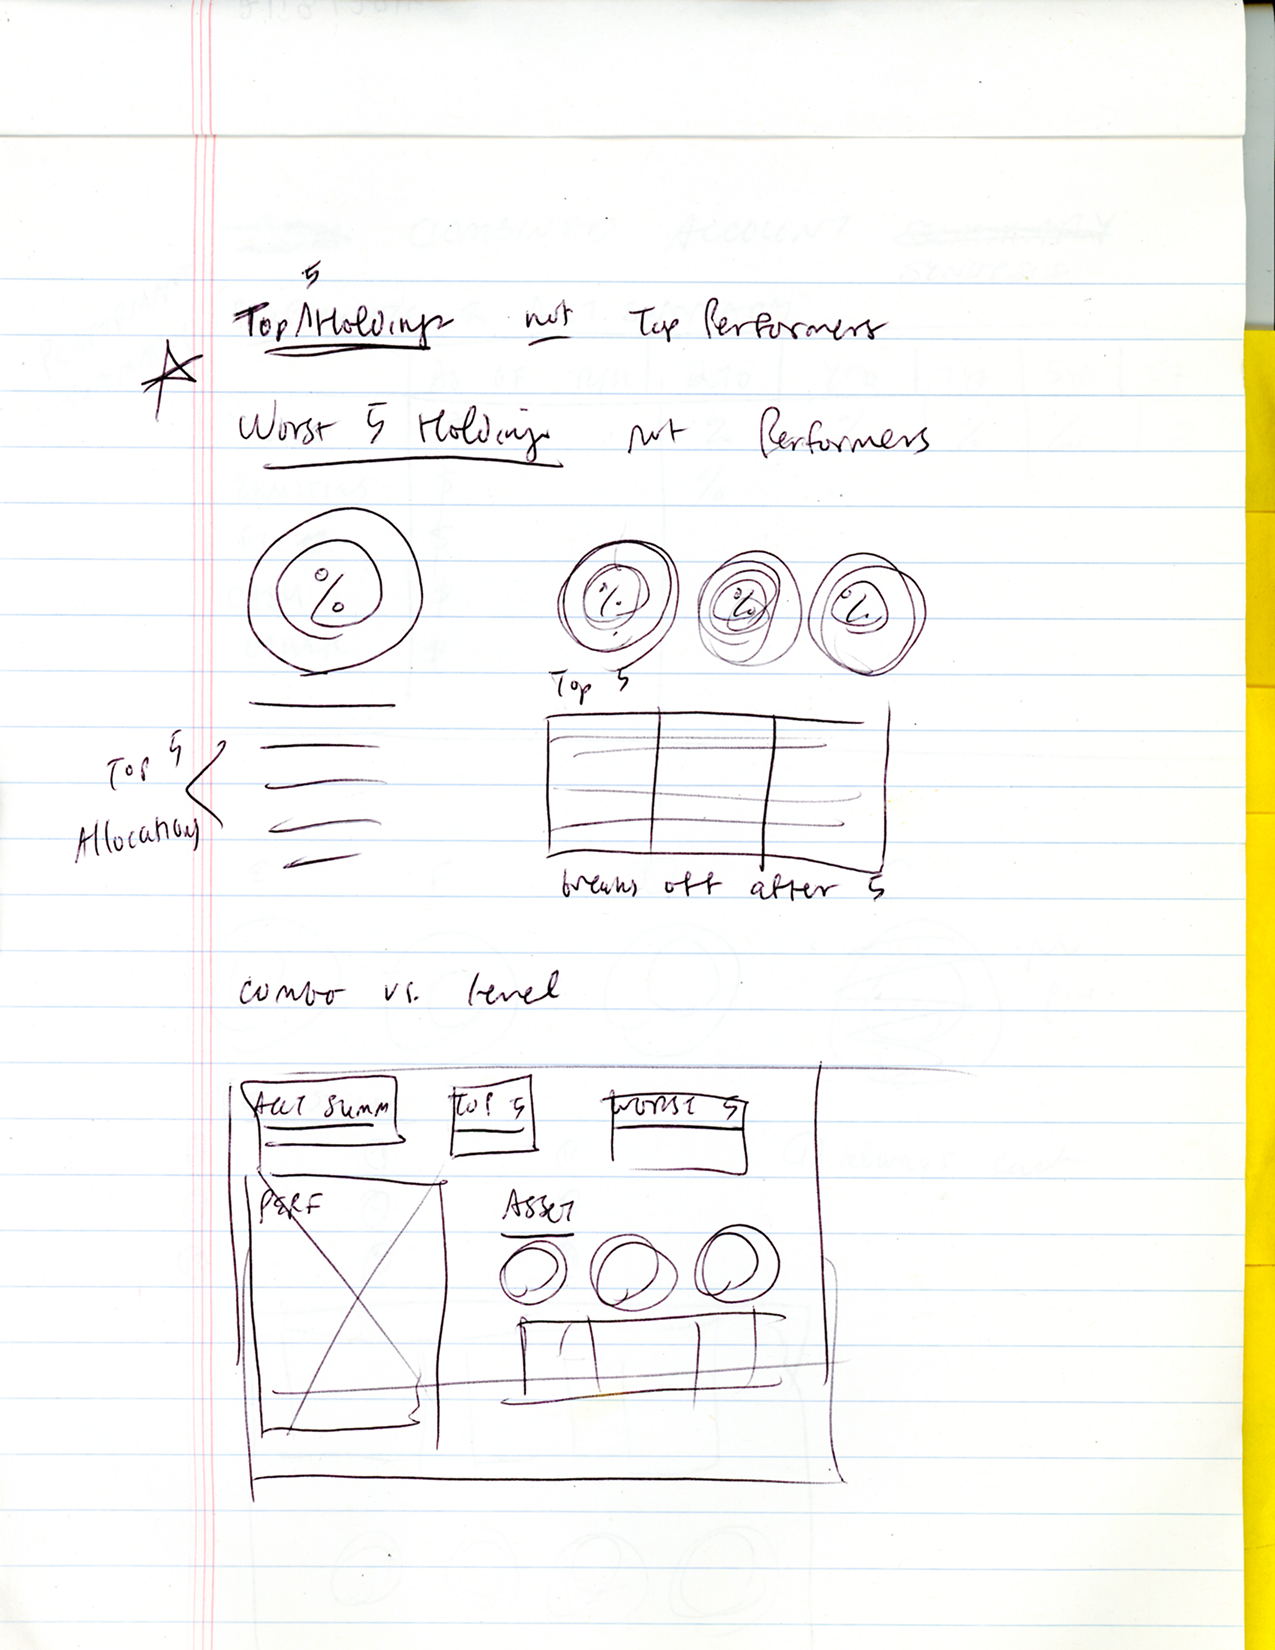 Top 5 Holdings not Top Performers
Worst 5 Holdings not Performers
%
% % %
Top 5
Top 5
Allocations
breaks off after 5
combo vs. level
ACCT SUMM
TOP 5
WORST 5
PERF
ASSET